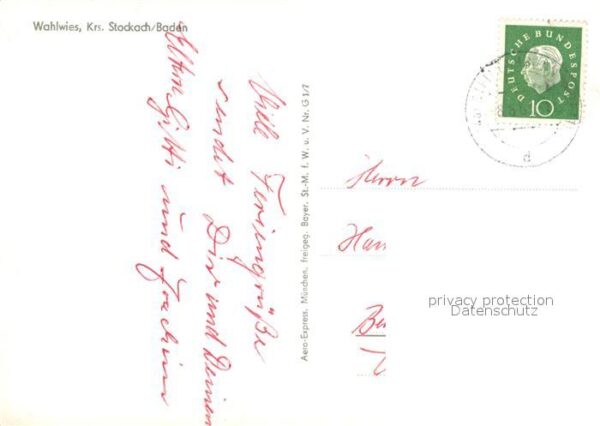 Wahlwies, Krs. Stockach/Baden
Viele Feriengrüße
sendet Dir und Deinen
Eltern Gitti und Joachim
Aero-Express, München, freigeg. Bayer. St.-M. f. W. u. V. Nr. G 5/7
DEUTSCHE BUNDESPOST
10
d
Herrn
Han
Be
privacy protection
Datenschutz